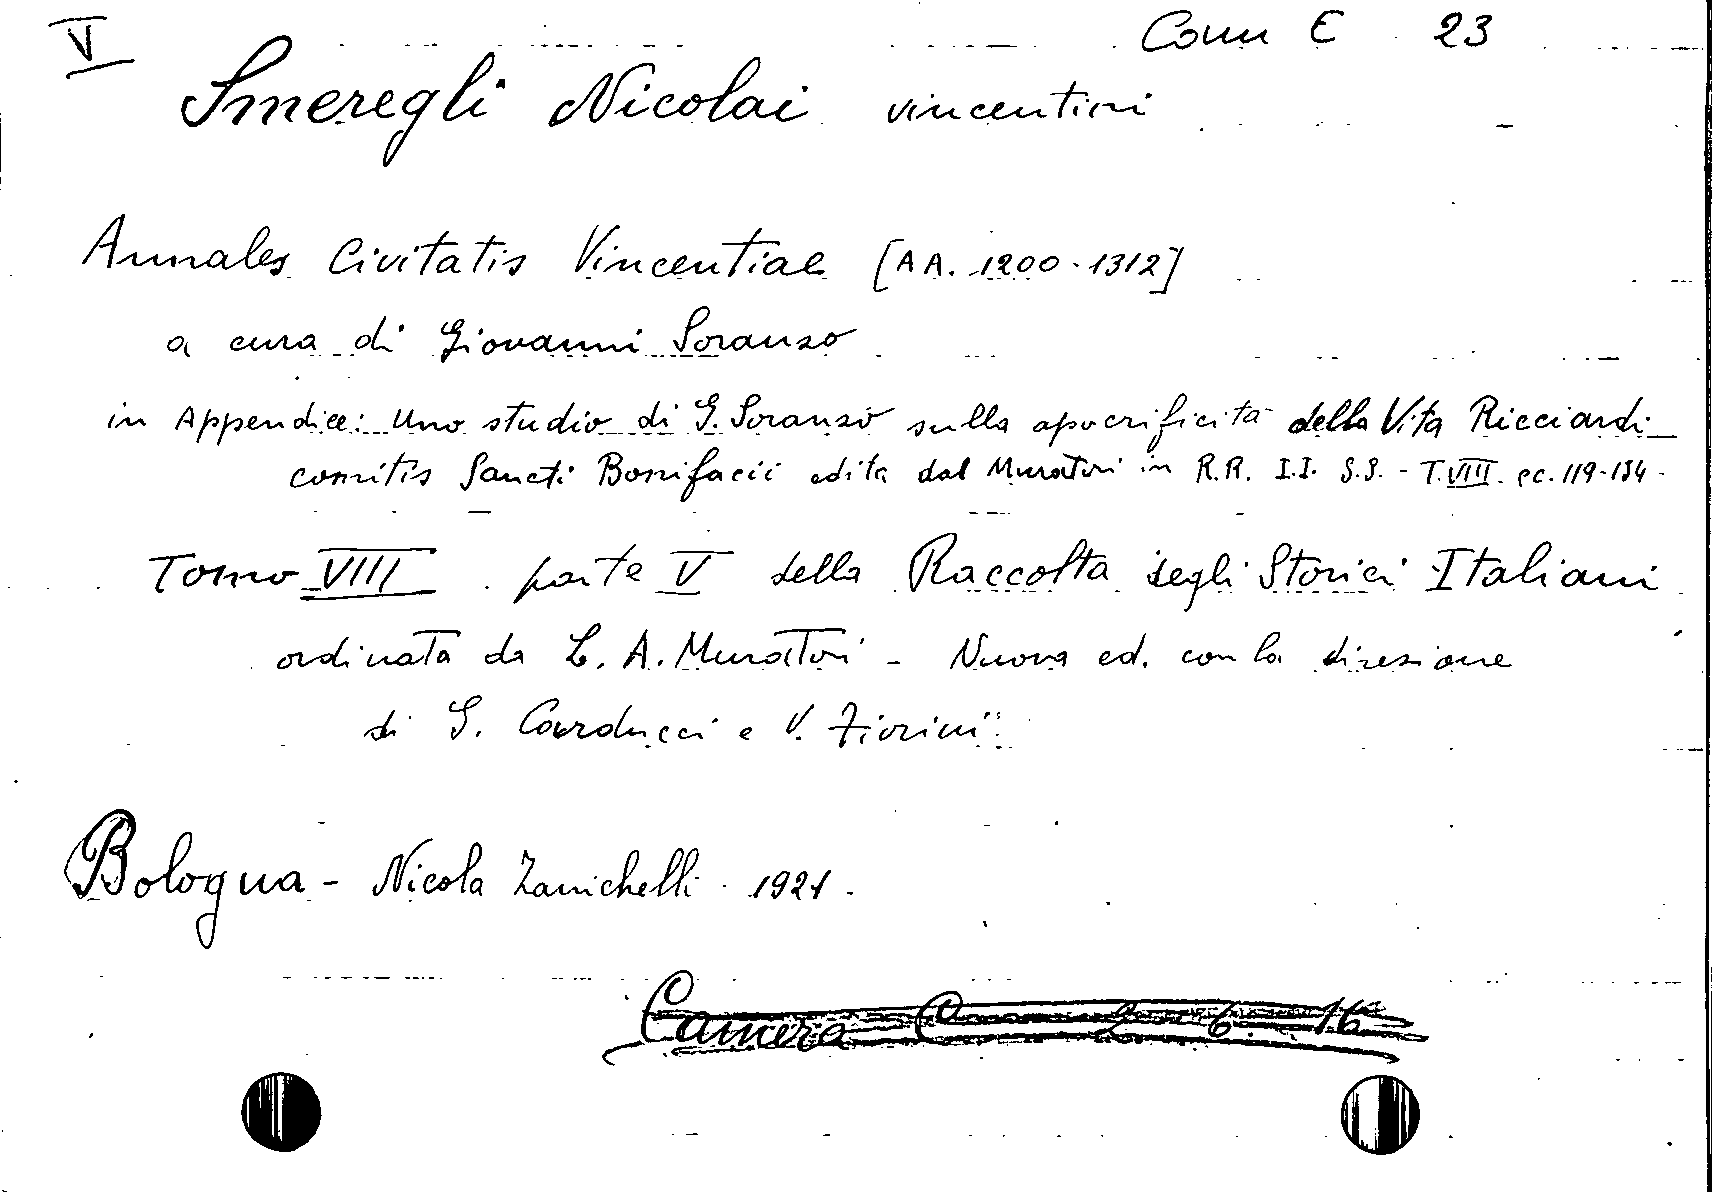 V Com E 23
Smeregli Nicolai vincentini
Annales Civitatis Vincentiae [AA. 1200-1312]
a cura di Giovanni Soranzo
in Appendice: Uno studio di G. Soranzo sulla apocrificità della Vita Ricciardi
comitis Sancti Bonifacii edita dal Muratori in R.R. I.I. S.S. - T. VIII. cc. 119-134 -
Tomo VIII . parte V della Raccolta degli Storici Italiani
ordinata da L. A. Muratori - Nuova ed. con la direzione
di G. Carducci e V. Fiorini"
Bologna - Nicola Zanichelli - 1921 -
Camera C 2 6 16